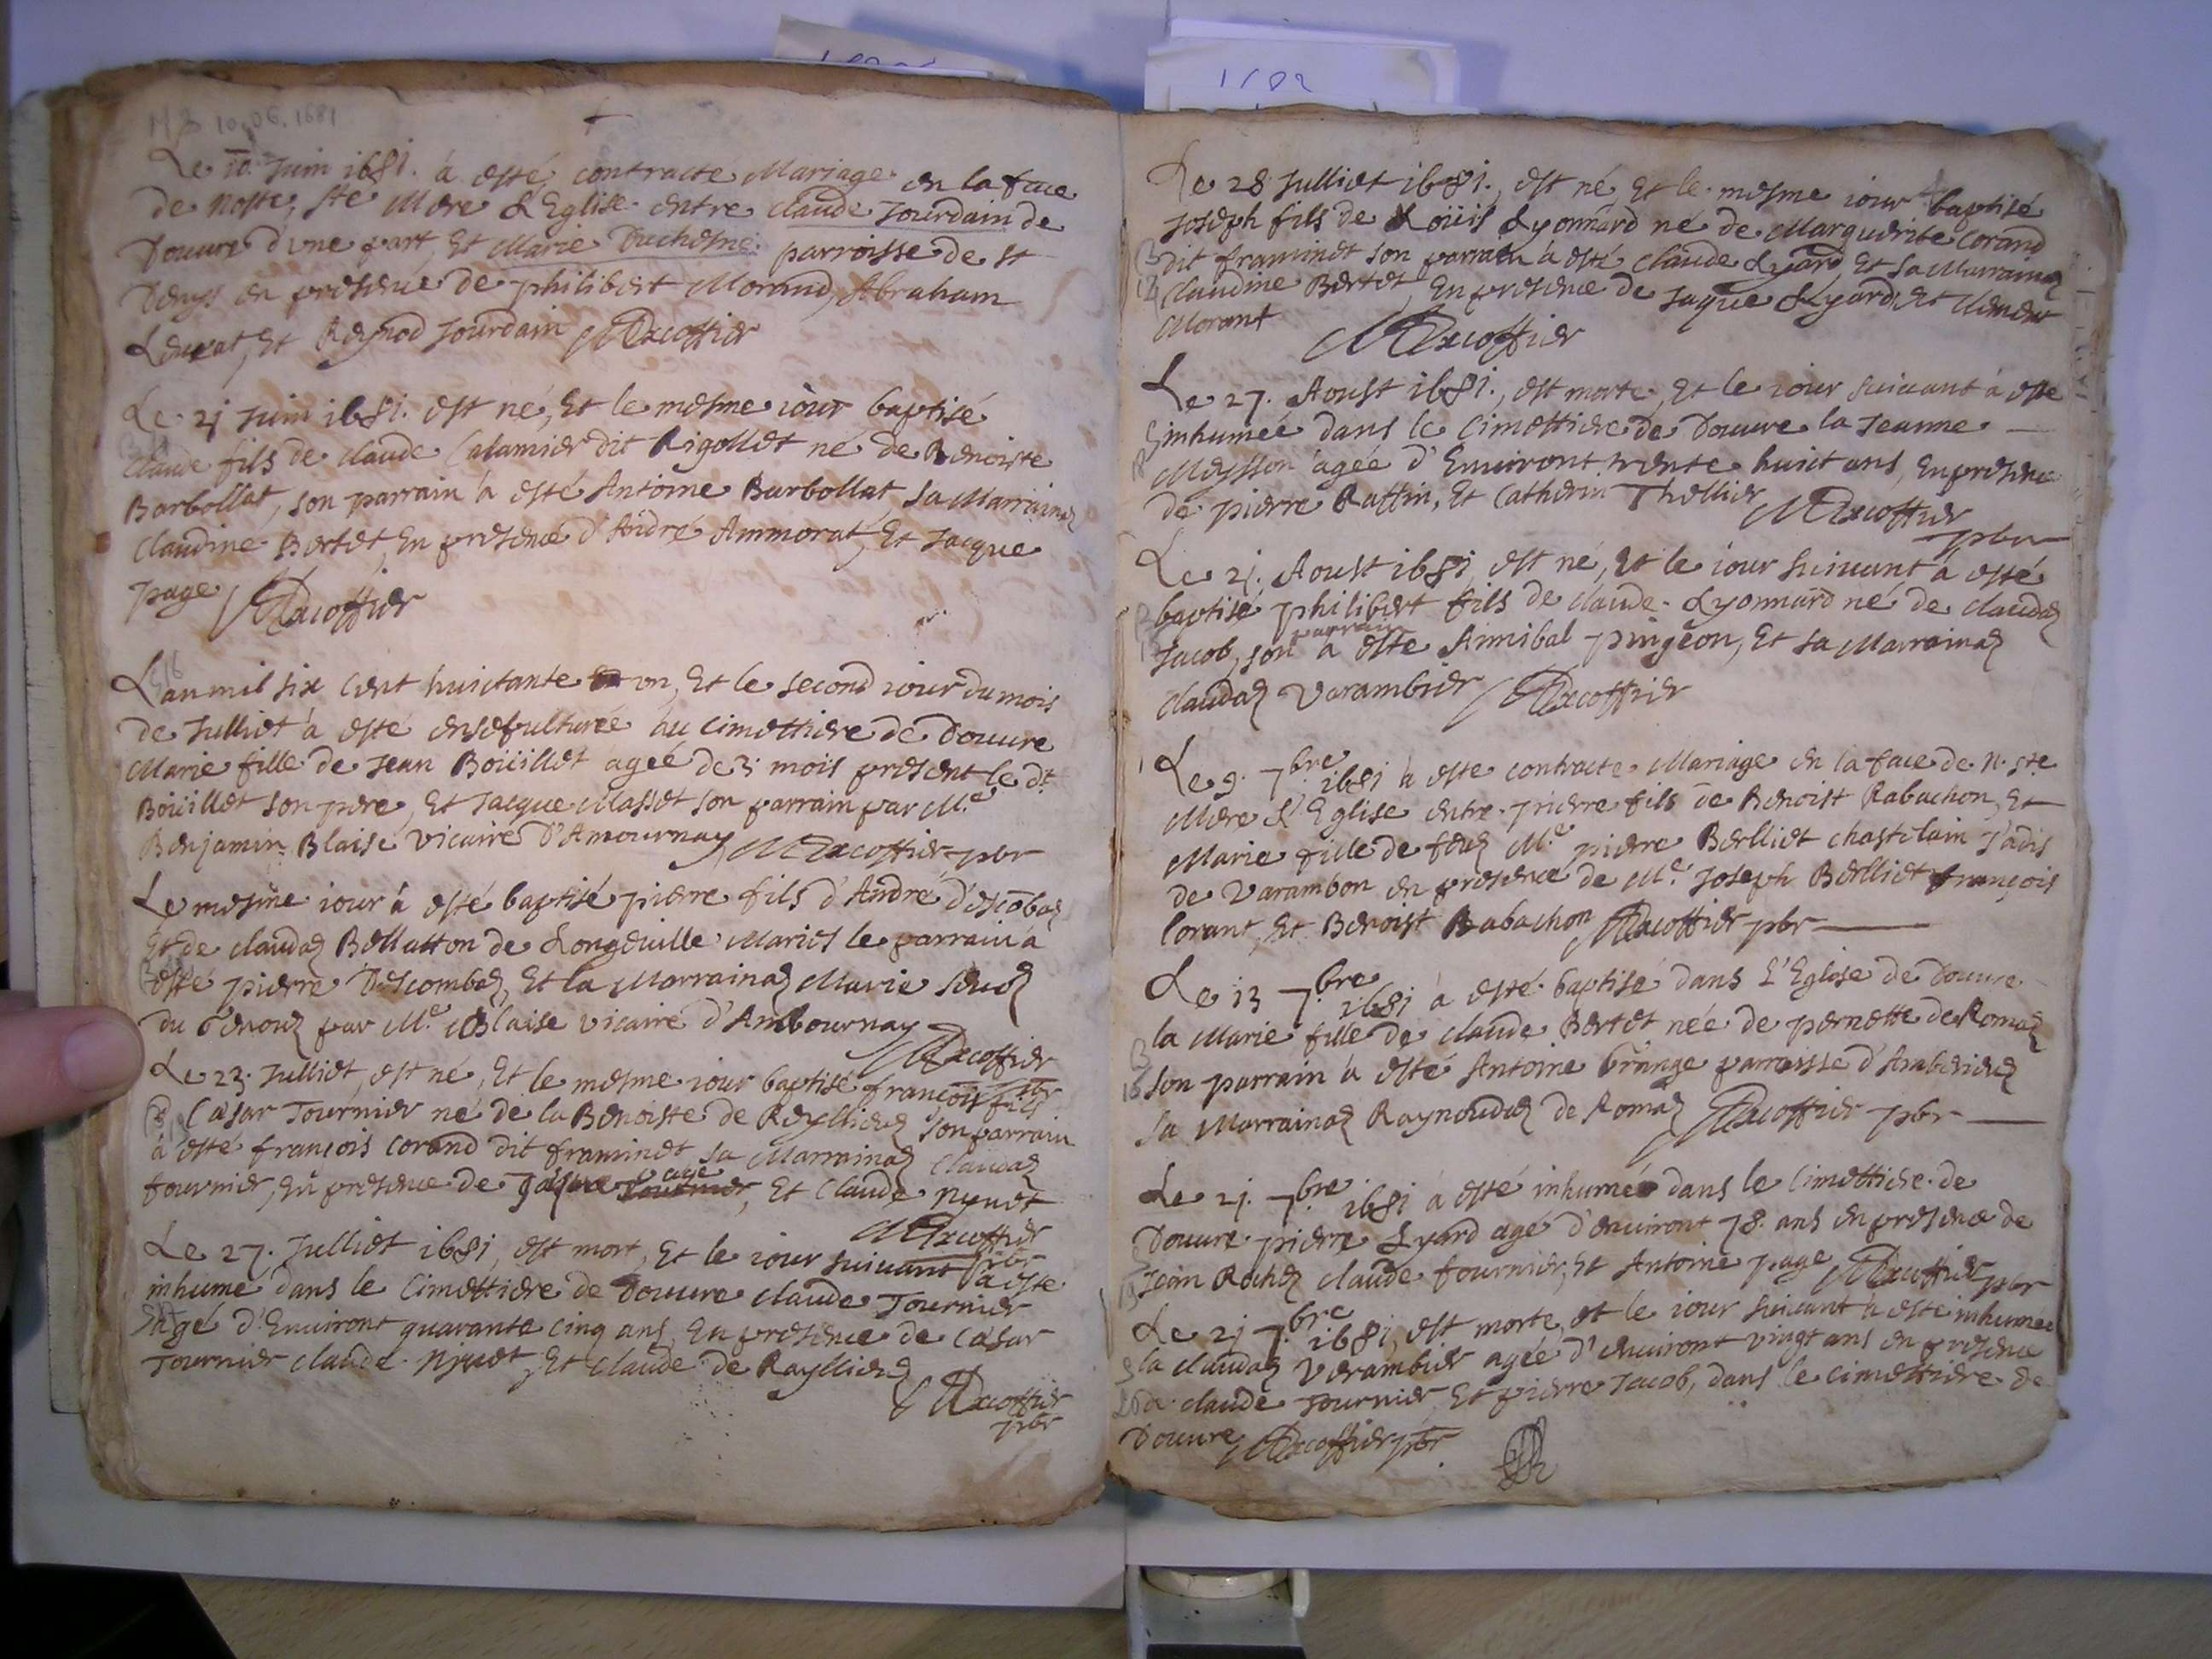 10.06.1681
Le 10. Juin 1681. à esté contracté Mariage en la face
de nostre, ste Mere L'Eglise entre claude Jourdain de
Douure d'vne part, Et Marie Duchesne parroisse de st
Denys en presence de philibert Morand, Abraham
Leurat, Et Reynod Jourdain MExcoffier
Le 21 Juin 1681. est né, Et le mesme iour baptisé
claude fils de claude Calamier dit Rigollet né de Benoiste
Barbollat, son parrain à esté Antoine Barbollat, sa Marraine
Claudine Bertet, En presence d'André Ammorat, Et Jacque
page MExcoffier
L'an mil six cent huictante vn, Et le second iour du mois
de Julliet à esté ensepulturée au Cimettiere de Douure
Marie fille de Jean Boüillet agée de 3 mois present le dt
Boüillet son pere, Et Jacque Masset son parrain par Me
Benjamin Blaise vicaire d'Amournay MExcoffier pbr
Le mesme iour à esté baptisé pierre fils d'André d'escobaz
Et de claudaz Bellatton de Longeuille Mariés le parrain à
esté pierre Descombaz, Et la Marrainaz Marie
du par Me Blaise vicaire d'Ambournay
MExcoffier pbr
Le 23. Julliet, est né, Et le mesme iour baptisé françois fils
Cæsar Tournier né de la Benoiste de Reyllieuz son parrain
à esté françois Corand dit framinet, sa Marrainaz Claudaz
fournier, En presence de page, Et Claude nyuet
MExcoffier pbr
Le 27. Julliet 1681, est mort, Et le iour suiuant à esté
inhumé dans le Cimettiere de Douure claude Tournier
agé d'Enuiront quarante cinq ans, En presence de Cæsar
Tournier claude Njuet, Et claude de Raylliez
MExcoffier
pbr
Le 28 Julliet 1681., est né, Et le mesme iour baptisé
Joseph fils de Loüis Lyonnard né de Marguerite Corand
dit framinet son parrain à esté Claude Lyard, Et sa Marrainaz
Claudine Bertet, En presence de Jaque Lyard, Et Clement
Morant MExcoffier
Le 27. Aoust 1681., est morte, Et le iour suiuant à esté
inhumée dans le Cimettiere de Douure la Jeanne
Meysson agée d'Enuiront trente huict ans, En presence
de pierre Raffin, Et Catherin Thellier MExcoffier
pbr
Le 21. Aoust 1681, est né, Et le iour suiuant à esté
baptisé philibert fils de claude Lyonnard né de claudaz
Jacob, son parrain à esté Annibal pingeon, Et sa Marrainaz
claudaz Varambier MExcoffier
Le 9. 7bre 1681 à esté contracté Mariage en la face de N. ste
Mere L'Eglise entre pierre fils de Benoist Rabachon, Et
Marie fille de feuz Me pierre Berlliet chastelain Jadis
de Varambon en presence de Me Joseph Berlliet françois
Corant, Et Benoist Rabachon MExcoffier pbr
Le 13 7bre 1681 à esté baptisé dans L'Eglise de Douure
la Marie fille de claude Bertet née de pernette de Romaz
son parrain à esté Antoine Grange parroisse d'Amberieuz
sa Marrainaz Raynoudaz de Romaz MExcoffier pbr
Le 21. 7bre 1681 à esté inhumé dans le Cimettiere de
Douure pierre Lyard agé d'enuiront 78. ans en presence de
Jean Rochez claude fournier, Et Antoine page MExcoffier pbr
Le 21 7bre 1681, est morte, et le iour suiuant à esté inhumée
la claudaz Verambier agée d'enuiront vingt ans en presence
de claude Tournier Et pierre Jacob, dans le Cimettiere de
Douure MExcoffier pbr